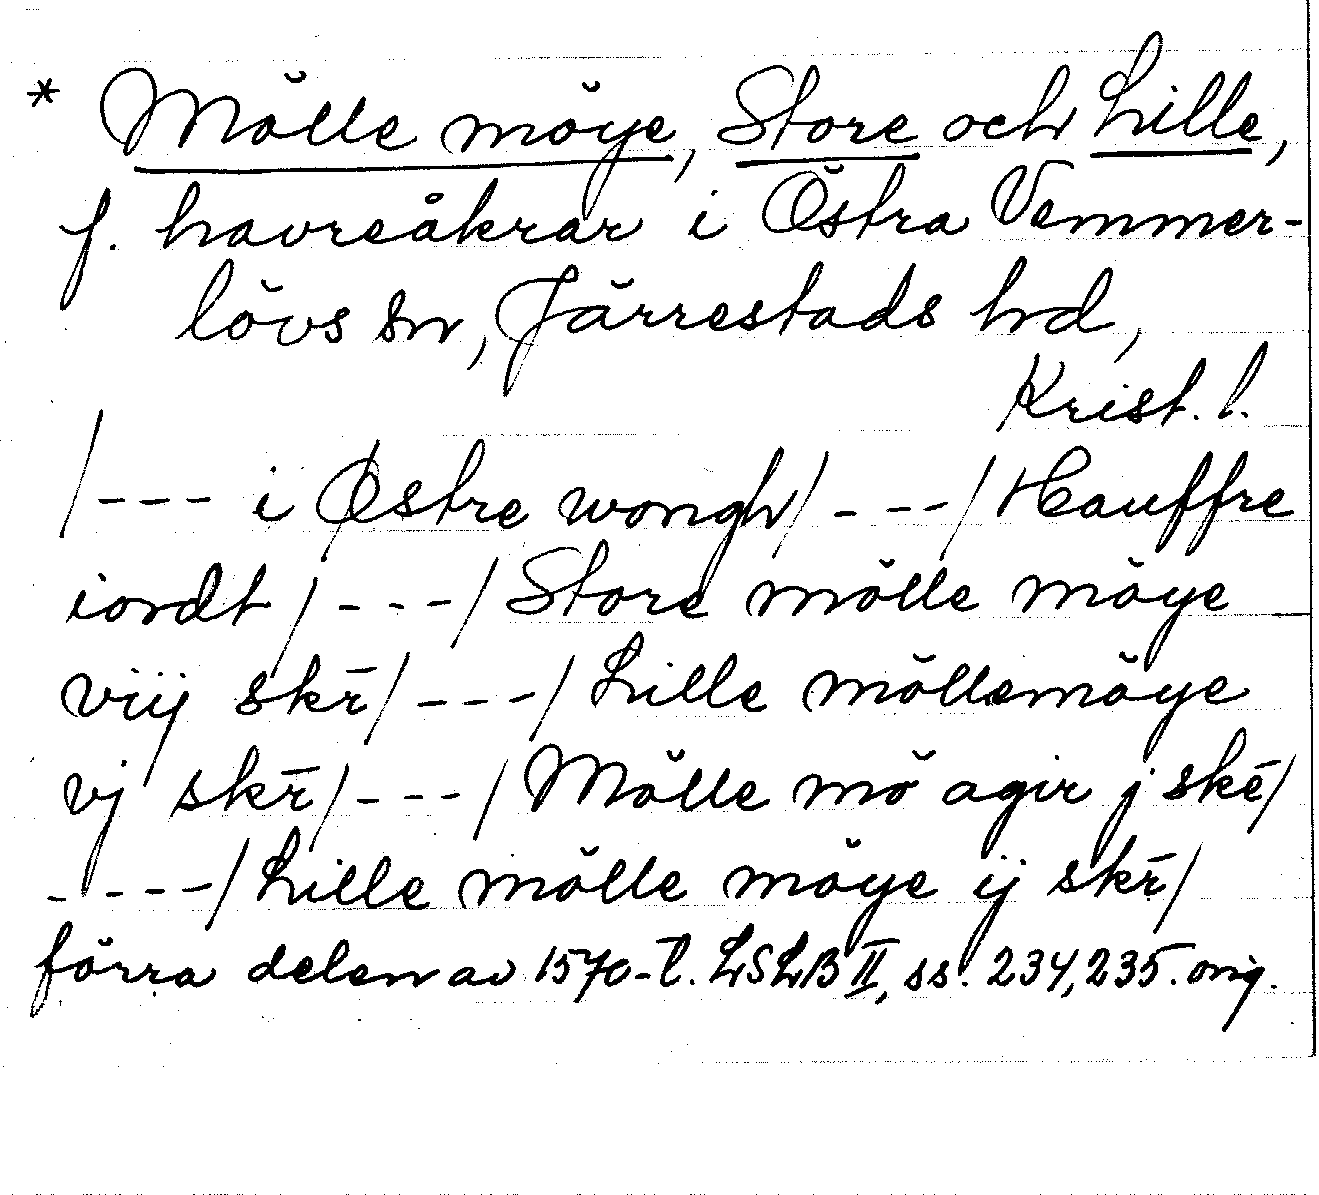 * Mölle möye, Store och Lille,
f. havreåkrar i Östra Vemmer-
lövs sn, Järrestads hd,
Krist. l.
/--- i Østre wongh/ ---/ Hauffre
iordt /---/ Store mölle möye
viij skr̄/ ---/ Lille möllemöye
vj skr̄/ ---/ Mölle mö agir j skē/
----/ Lille mölle möye ij skr̄/
förra delen av 1570-t. LSLB II, ss. 234, 235. orig.